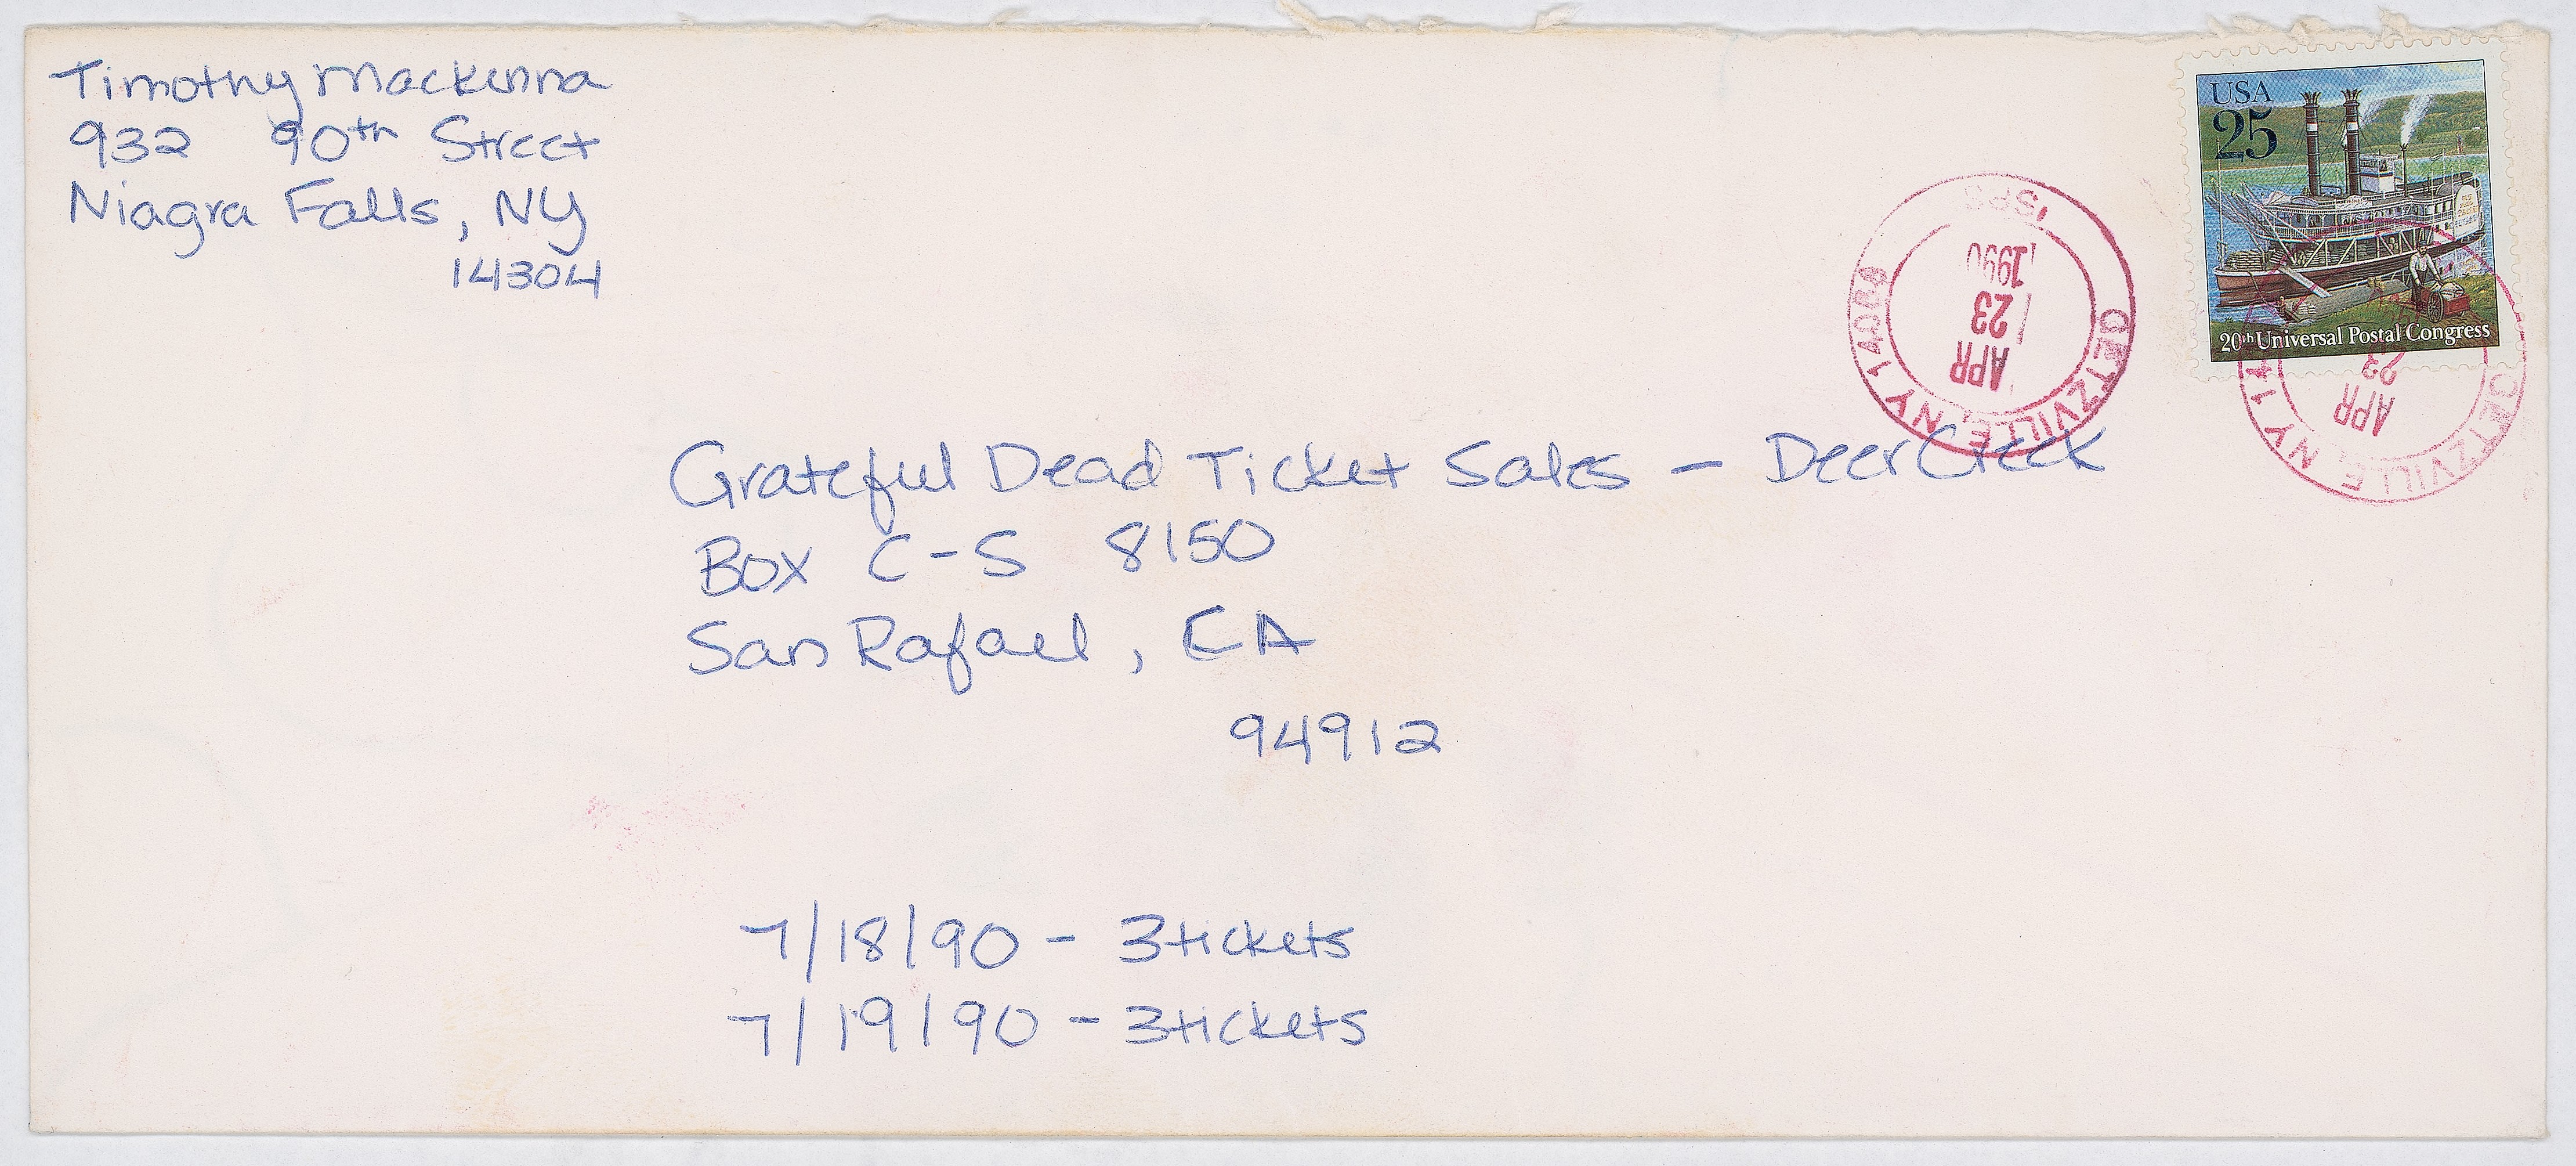 Timothy Mackenna
932 90th Street
Niagra Falls, NY
14304
USA
25
20th Universal Postal Congress
GETZVILLE, NY 14068
USPS
APR
23
1990
GETZVILLE, NY
APR
23
Grateful Dead Ticket Sales - Deer Creek
Box C-S 8150
San Rafael, CA
94912
7/18/90 - 3 tickets
7/19/90 - 3 tickets